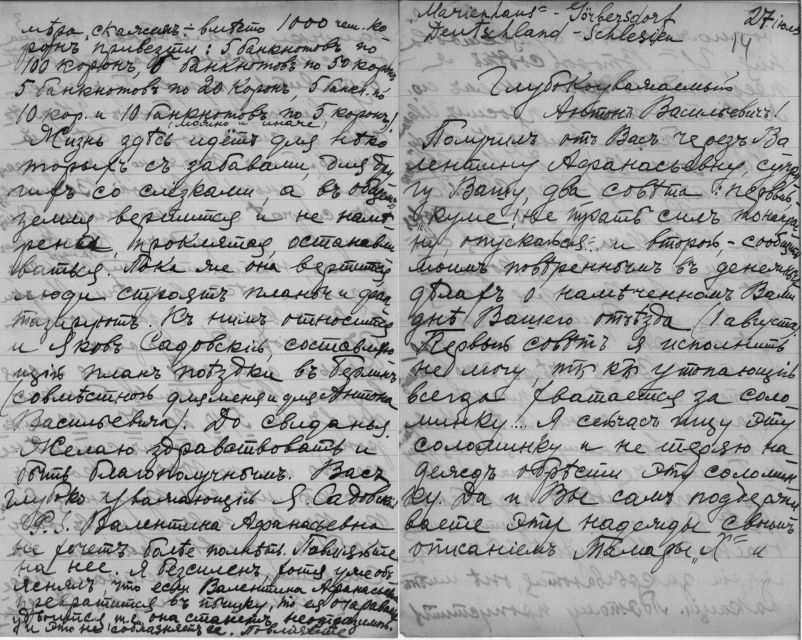 мѣра, скажемъ, – вмѣсто 1000 чеш. ко
ронъ привезти: 5 банкнотовъ по
100 коронъ, 5 банкнотовъ по 50 коронъ
5 банкнотовъ по 20 коронъ, 5 банк. по
10 кор. и 10 банкнотовъ по 5 коронъ)
(можно и иначе)
Жизнь здѣсь идётъ для нѣко
торыхъ съ забавами, для дру
гихъ со слезками, а въ общемъ
земля вертится и не намѣ
рена, проклятая, останавли
ваться. Пока же она вертится
люди строятъ планы и фан
тазируютъ. Къ нимъ относится
и Яковъ Садовскій, составляю
щій планъ поѣздки въ Берлинъ
(совмѣстной для меня и для Антона
Васильевича). До свиданья.
Желаю здравствовать и
быть благополучнымъ. Васъ
глубоко уважающій Я Садовскій
P.S. Валентина Афанасьевна
не хочетъ болѣе полнѣть. Повліяйте
на нее. Я безсиленъ, хотя уже объ
яснялъ, что если Валентина Афанасьевна
превратится въ пышку, то ея очарованіе
удвоится и она станетъ неотразимой.
И это не соблазняетъ ее. Повліяйте
Marienhaus – Görbersdorf
Deutschland – Schlesien
27 іюля
14
Глубокоуважаемый
Антонъ Васильевичъ!
Получилъ отъ Васъ черезъ Ва
лентину Афанасьевну, супру
гу Вашу, два совѣта: первый,
"куме! не трать силъ понапрас
ну, опускайся" и второй, – сообщить
моимъ повѣреннымъ въ денежныхъ
дѣлахъ о намѣченномъ Вами
днѣ Вашего отъѣзда (1 августа)
Первый совѣтъ я исполнить
не могу, тк кк утопающій
всегда хватается за соло
минку... Я сейчасъ ищу эту
соломинку и не теряю на
деждъ обрѣсти эту соломин
ку. Да и Вы самъ поддержи
ваете эти надежды своимъ
описаніемъ Тамары "Х" и